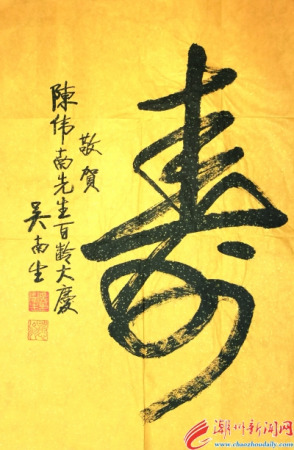 壽
敬賀
陳伟南先生百齡大慶
吴南生
潮州新闻网
www.chaozhoudaily.com